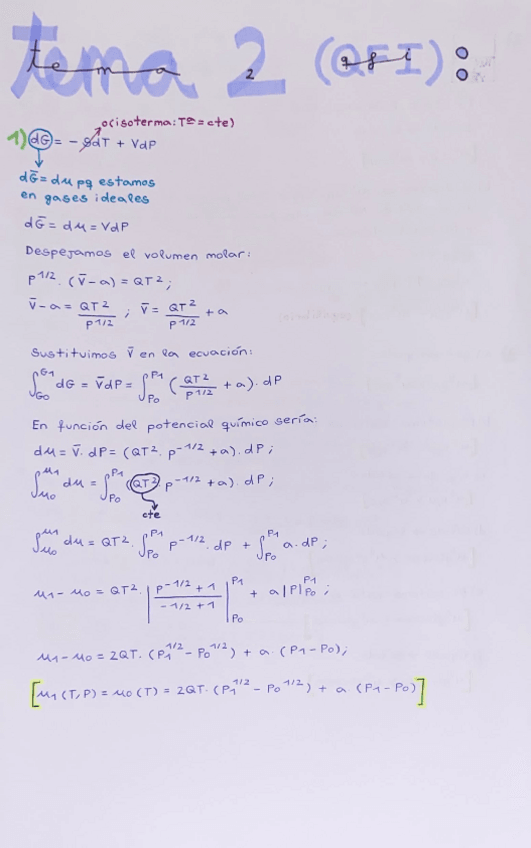 Tema 2 (QFI):
tema 2 qfi
o(isoterma: Tª = cte)
1) dG = - SdT + VdP
dG̅ = dμ pq estamos
en gases ideales
dG̅ = dμ = VdP
Despejamos el volumen molar:
P^1/2 · (V̅ - a) = QT²;
V̅ - a = QT²/P^1/2 ; V̅ = QT²/P^1/2 + a
Sustituimos V̅ en la ecuación:
∫_G0^G1 dG = V̅dP = ∫_P0^P1 (QT²/P^1/2 + a) · dP
En función del potencial químico sería:
dμ = V̅ · dP = (QT² · P^-1/2 + a) · dP;
∫_μ0^μ1 dμ = ∫_P0^P1 (QT² · P^-1/2 + a) · dP;
cte
∫_μ0^μ1 dμ = QT² · ∫_P0^P1 P^-1/2 · dP + ∫_P0^P1 a · dP;
μ1 - μ0 = QT² · |P^-1/2+1 / -1/2+1|_P0^P1 + a|P|_P0^P1 ;
μ1 - μ0 = 2QT · (P1^1/2 - P0^1/2) + a · (P1 - P0);
[μ1 (T,P) = μ0 (T) = 2QT · (P1^1/2 - P0^1/2) + a (P1 - P0)]